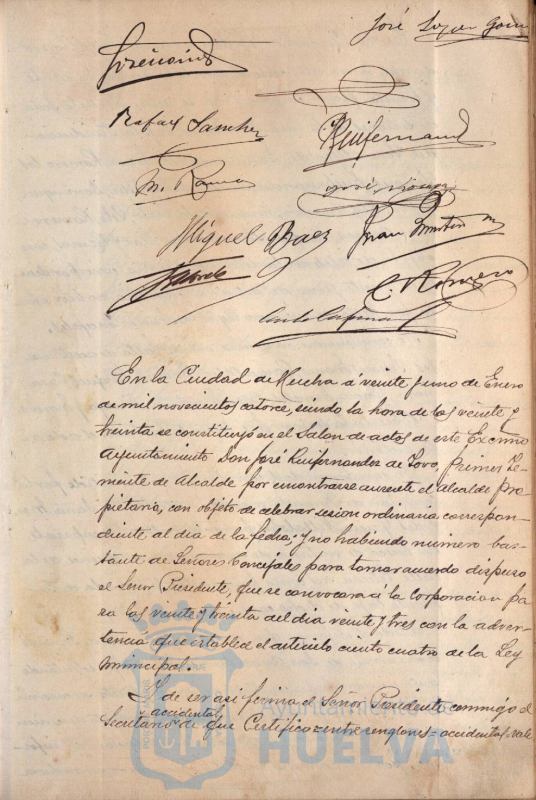 José Lopez Gom
Rafael Sanchez
Ruifernand
M. Ramos
Miguel Baez
Juan
C. Romero
En la Ciudad de Huelva á veinte y uno de Enero
de mil novecientos catorce, siendo la hora de las veinte y
treinta se constituyó en el Salon de actos de este Excmo
Ayuntamiento Don José Ruifernandez de Toro, Primer Te-
niente de Alcalde por encontrarse ausente el Alcalde pro-
pietario, con objeto de celebrar sesion ordinaria correspon-
diente al dia de la fecha; y no habiendo número bas-
tante de Señores Concejales para tomar acuerdo dispuso
el Señor Presidente, que se convocara á la Corporacion pa
ra las veinte y treinta del dia veinte y tres con la adver-
tencia que establece el articulo ciento cuatro de la Ley
municipal.
Y de ser asi firma el Señor Presidente conmigo el
accidental
Secretario de que Certifico = entre renglones = accidental = vale
Ayuntamiento de
HUELVA